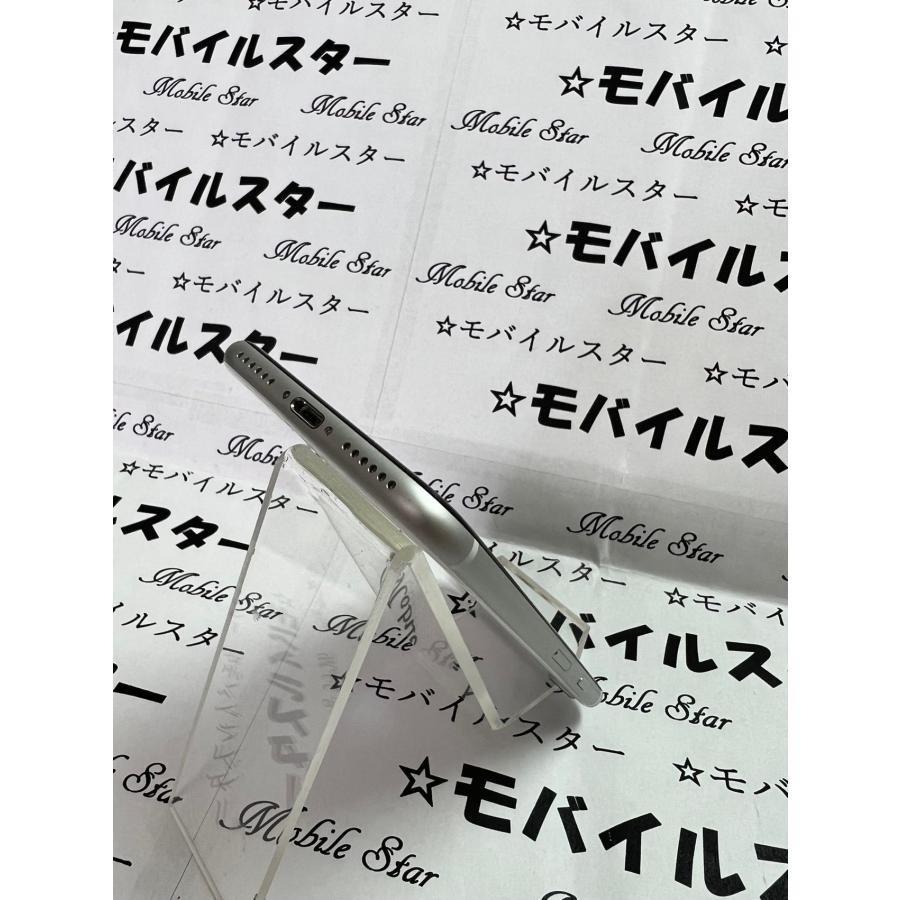 ☆モバイルスター
Mobile Star
モバイルスター
☆モバイルスター
☆モバイル
Mobile Star Mobile Star
Mobile Star Mobile Star
スター ☆モバイルスター
☆モバイルスター ☆モ
バイルスター
☆モバイルス
Mobile Star Mobile Star
Mobile Star Mobile Star
☆モバイルスター
☆モバイルスター ☆モバ
イルスター
☆モバイルス
Star Mobile
☆モバイルスター
Star
Mobile Star
ルスター
スター
☆モバイ
Mobile Star
Mobile
バイルス
ルスター
Mobile Star
☆モバイルスター
☆モバ
Star
☆モバイルス
Mobile Star